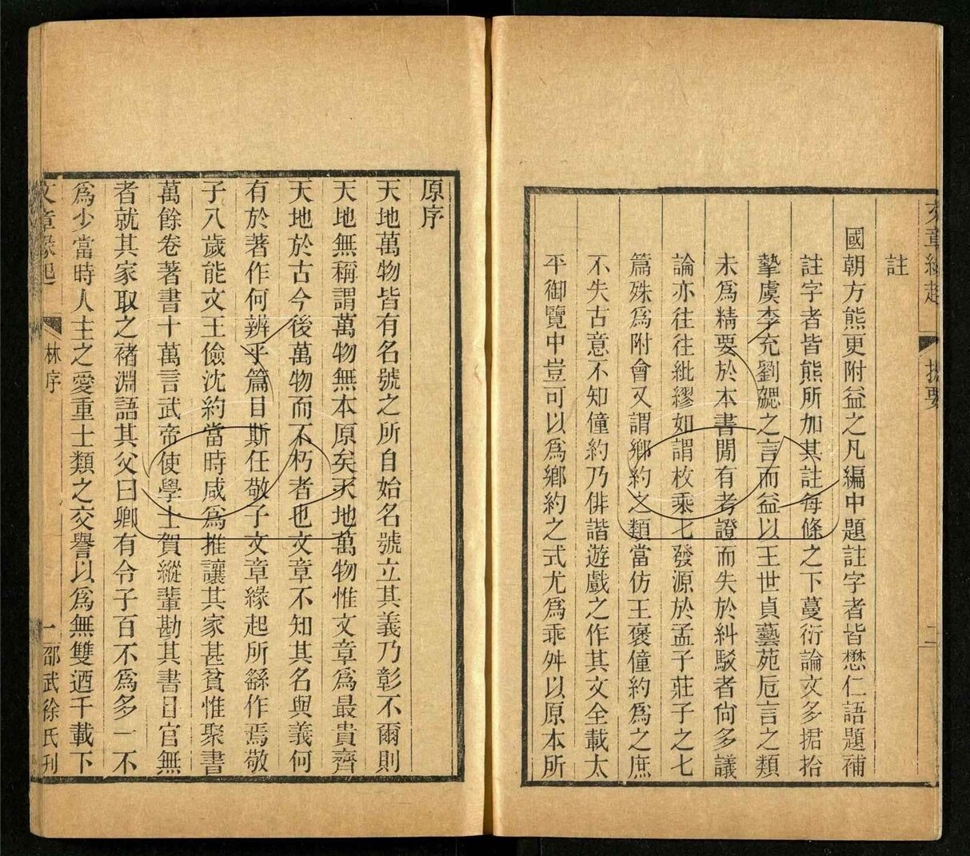 文章緣起
提要
二
註
國朝方熊更附益之凡編中題註字者皆懋仁語題補
註字者皆熊所加其註每條之下蔓衍論文多捃拾
摯虞李充劉勰之言而益以王世貞藝苑卮言之類
未爲精要於本書閒有考證而失於糾駁者尙多議
論亦往往紕繆如謂枚乘七發源於孟子莊子之七
篇殊爲附會又謂鄉約之類當仿王褒僮約爲之庶
不失古意不知僮約乃俳諧遊戲之作其文全載太
平御覽中豈可以爲鄉約之式尤爲乖舛以原本所
原序
天地萬物皆有名號之所自始名號立其義乃彰不爾則
天地無稱謂萬物無本原矣天地萬物惟文章爲最貴齊
天地於古今後萬物而不朽者也文章不知其名與義何
有於著作何辨乎篇目斯任敬子文章緣起所繇作焉敬
子八歲能文王儉沈約當時咸爲推讓其家甚貧惟聚書
萬餘卷著書十萬言武帝使學士賀縱輩勘其書目官無
者就其家取之褚淵語其父曰卿有令子百不爲多一不
爲少當時人主之愛重士類之交譽以爲無雙迺千載下
文章緣起
林序
一
邵武徐氏刊